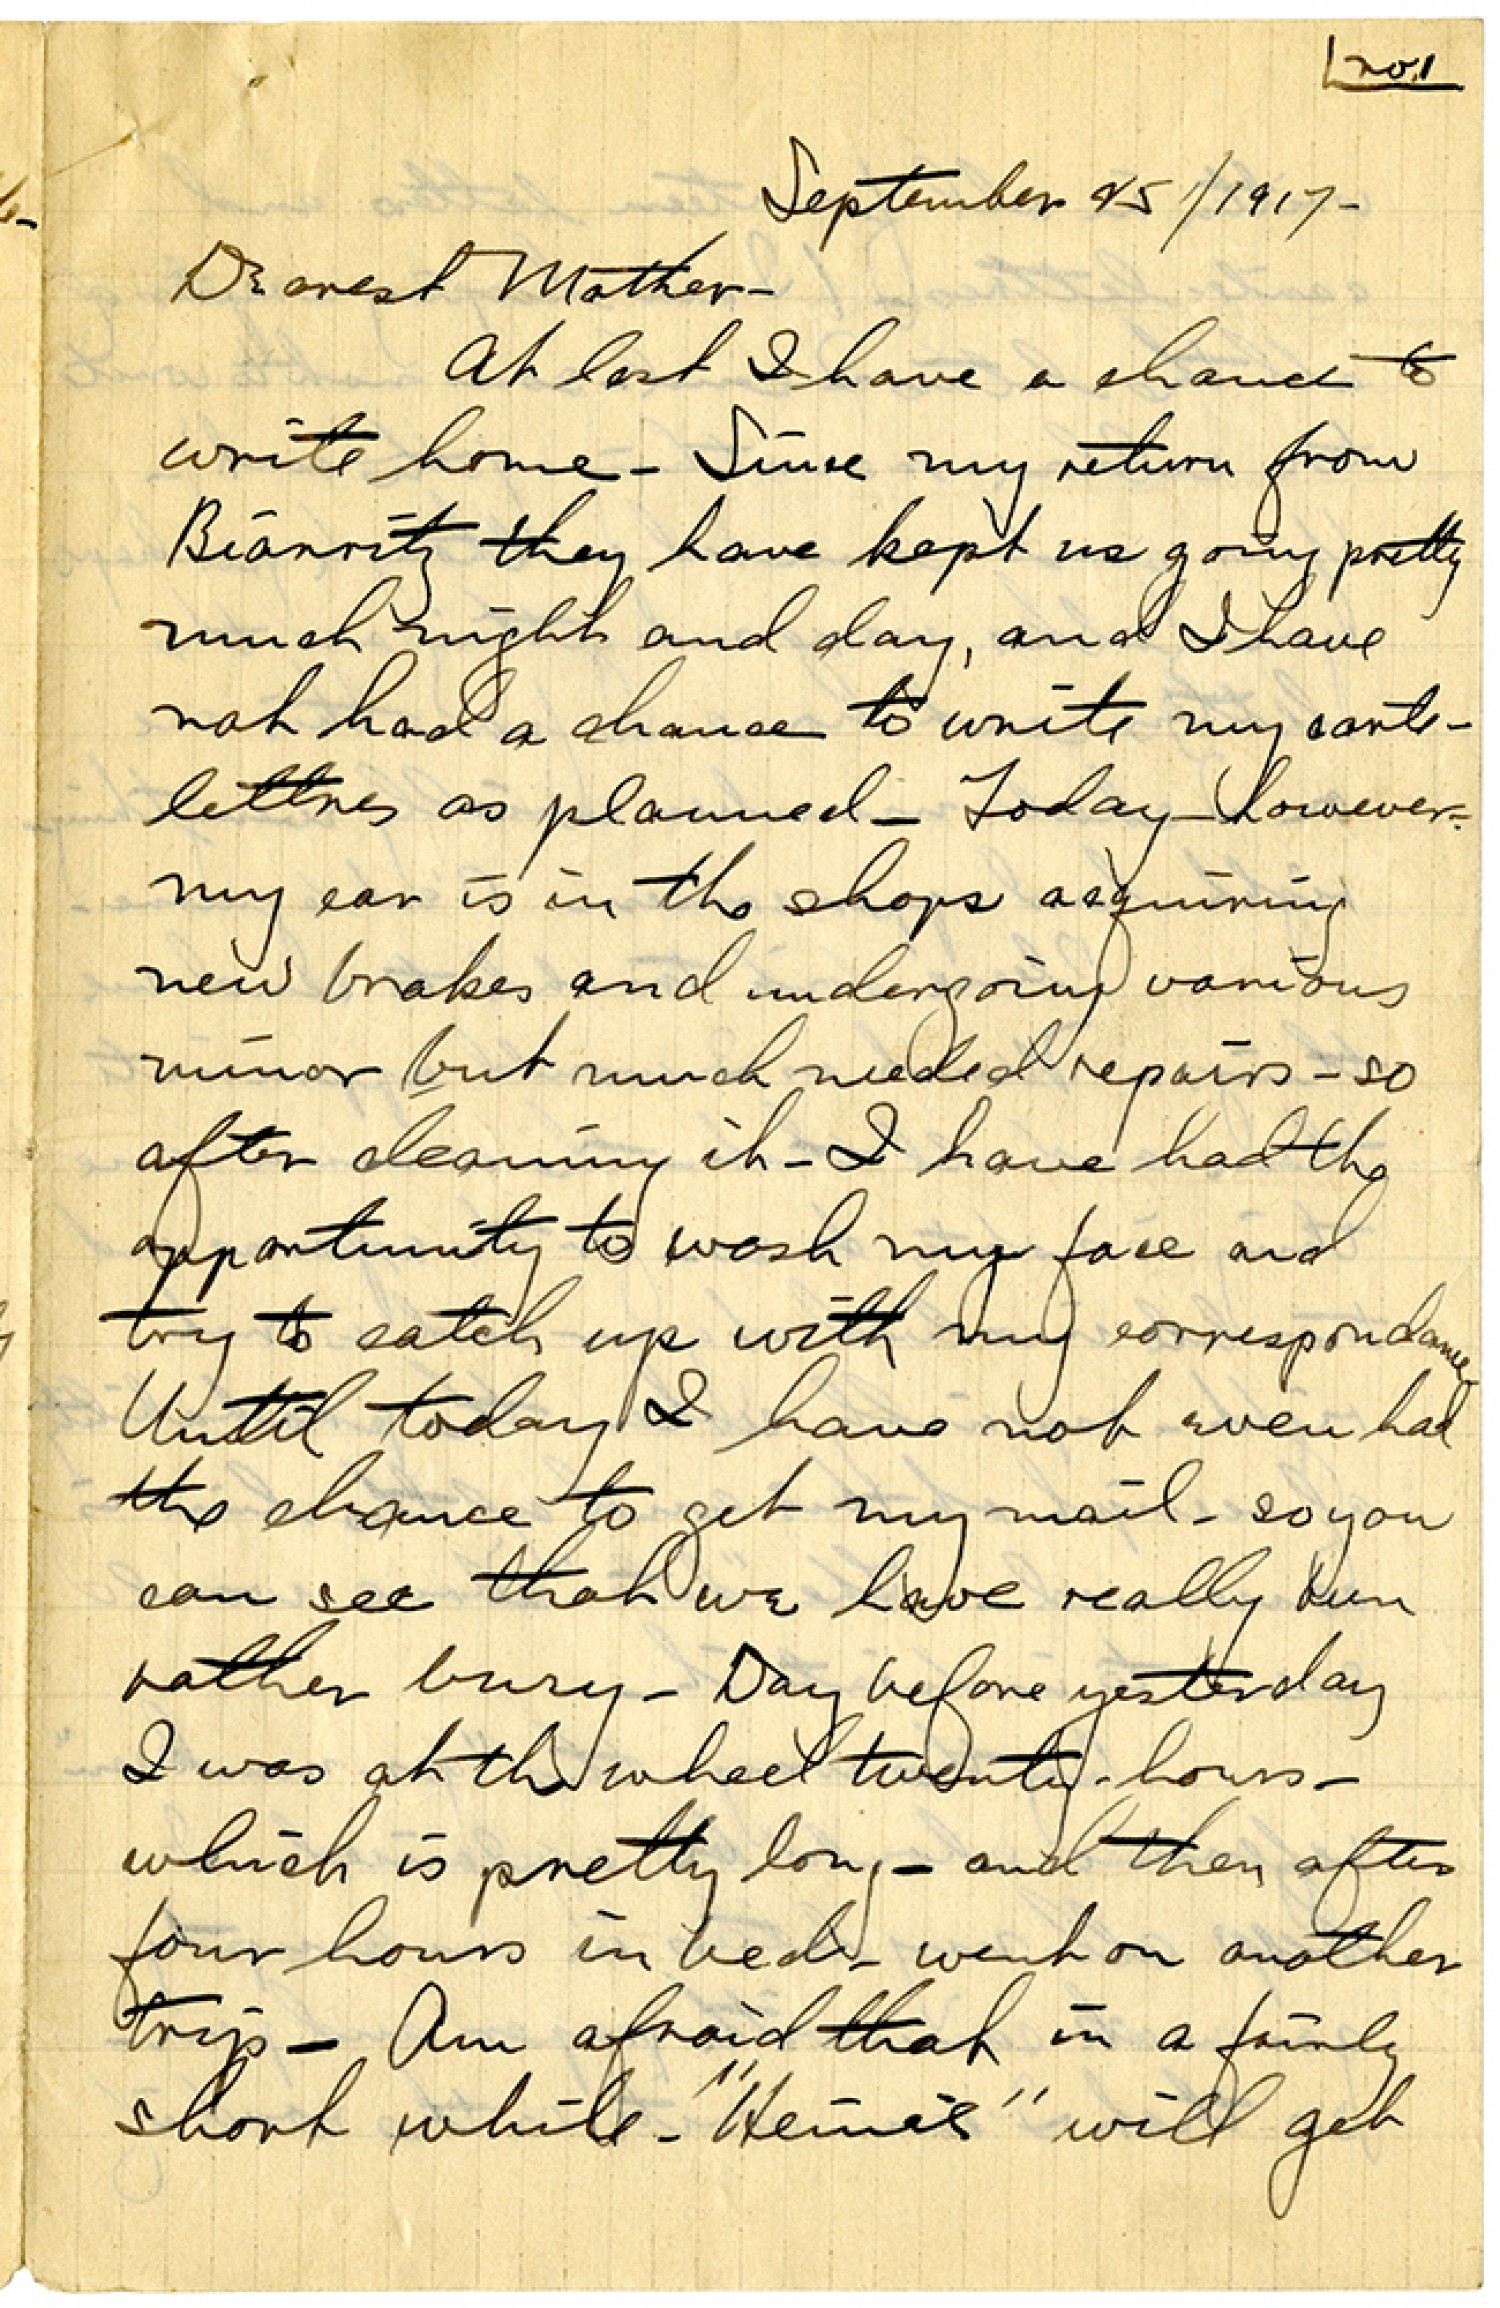 no. 1
September 25/1917-
Dearest Mother-
At last I have a chance to
write home - Since my return from
Biarritz they have kept us going pretty
much night and day, and I have
not had a chance to write my carte-
lettres as planned - Today - however -
my car is in the shops acquiring
new brakes and undergoing various
minor but much needed repairs - so
after cleaning it - I have had the
opportunity to wash my face and
try to catch up with my correspondance
Until today I have not even had
the chance to get my mail - so you
can see that we have really been
rather busy - Day before yesterday
I was at the wheel twenty-hours -
which is pretty long - and then after
four hours in bed - went on another
trip - Am afraid that in a fairly
short while - "Heinie" will get